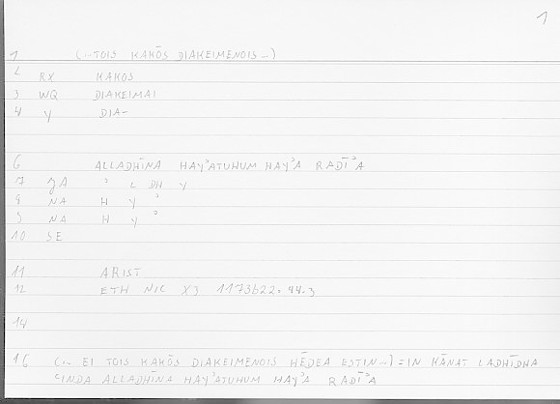 1
1 (..TOIS KAKŌS DIAKEIMENOIS ..)
2 RX KAKOS
3 WQ DIAKEIMAI
4 Y DIA-
6 ALLADHĪNA HAYʾATUHUM HAYʾA RADĪʾA
7 JA ʾ L DH Y
8 NA H Y ʾ
9 NA H Y ʾ
10 SE
11 ARIST
12 ETH NIC X3 1173b22: 44.3
14
16 (.. EI TOIS KAKŌS DIAKEIMENOIS HĒDEA ESTIN ..) = IN KĀNAT LADHĪDHA
ʿINDA ALLADHĪNA HAYʾATUHUM HAYʾA RADĪʾA